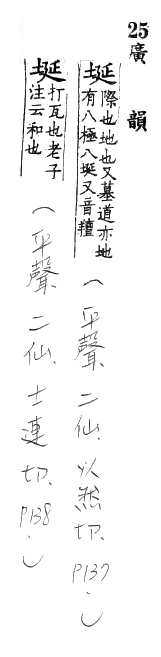 25廣韻
埏際也地也又墓道亦地有八極八埏又音羶(平聲、二仙、以然切、P137.)
埏打瓦也老子注云和也(平聲、二仙、士連切、P138.)